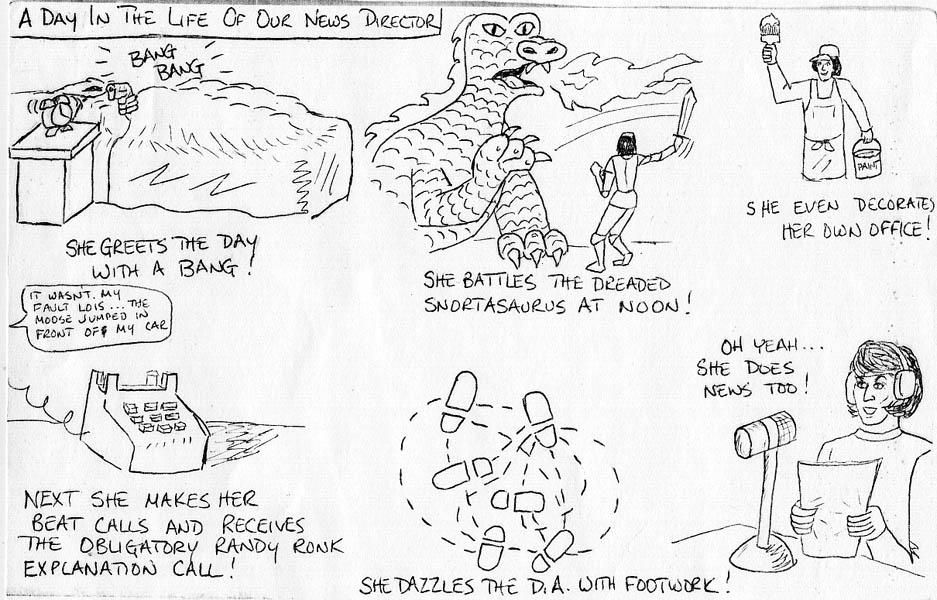 A DAY IN THE LIFE OF OUR NEWS DIRECTOR
BANG
BANG
SHE GREETS THE DAY
WITH A BANG!
IT WASN'T MY
FAULT LOIS...THE
MOOSE JUMPED IN
FRONT OF MY CAR
NEXT SHE MAKES HER
BEAT CALLS AND RECEIVES
THE OBLIGATORY RANDY RONK
EXPLANATION CALL!
SHE BATTLES THE DREADED
SNORTASAURUS AT NOON!
SHE DAZZLES THE D.A. WITH FOOTWORK!
PAINT
SHE EVEN DECORATES
HER OWN OFFICE!
OH YEAH...
SHE DOES
NEWS TOO!